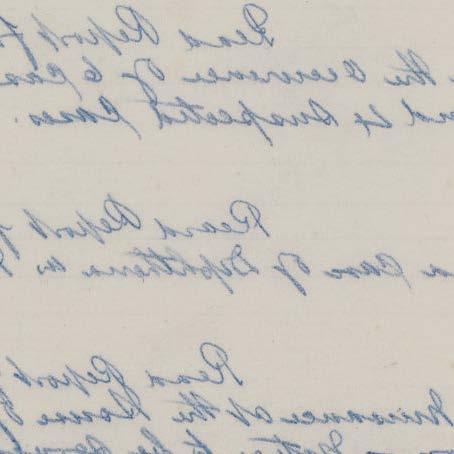 Read Report f
the Occurrence of 6 Cas
and 4 Suspected Cases.
Read Report f
a Case of Diphtheria in
Read Report
Nuisance at the House
to be